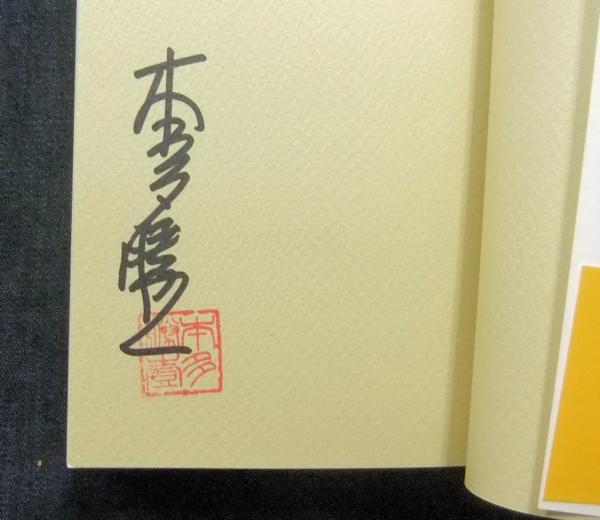 本多勝一
本多
勝壹